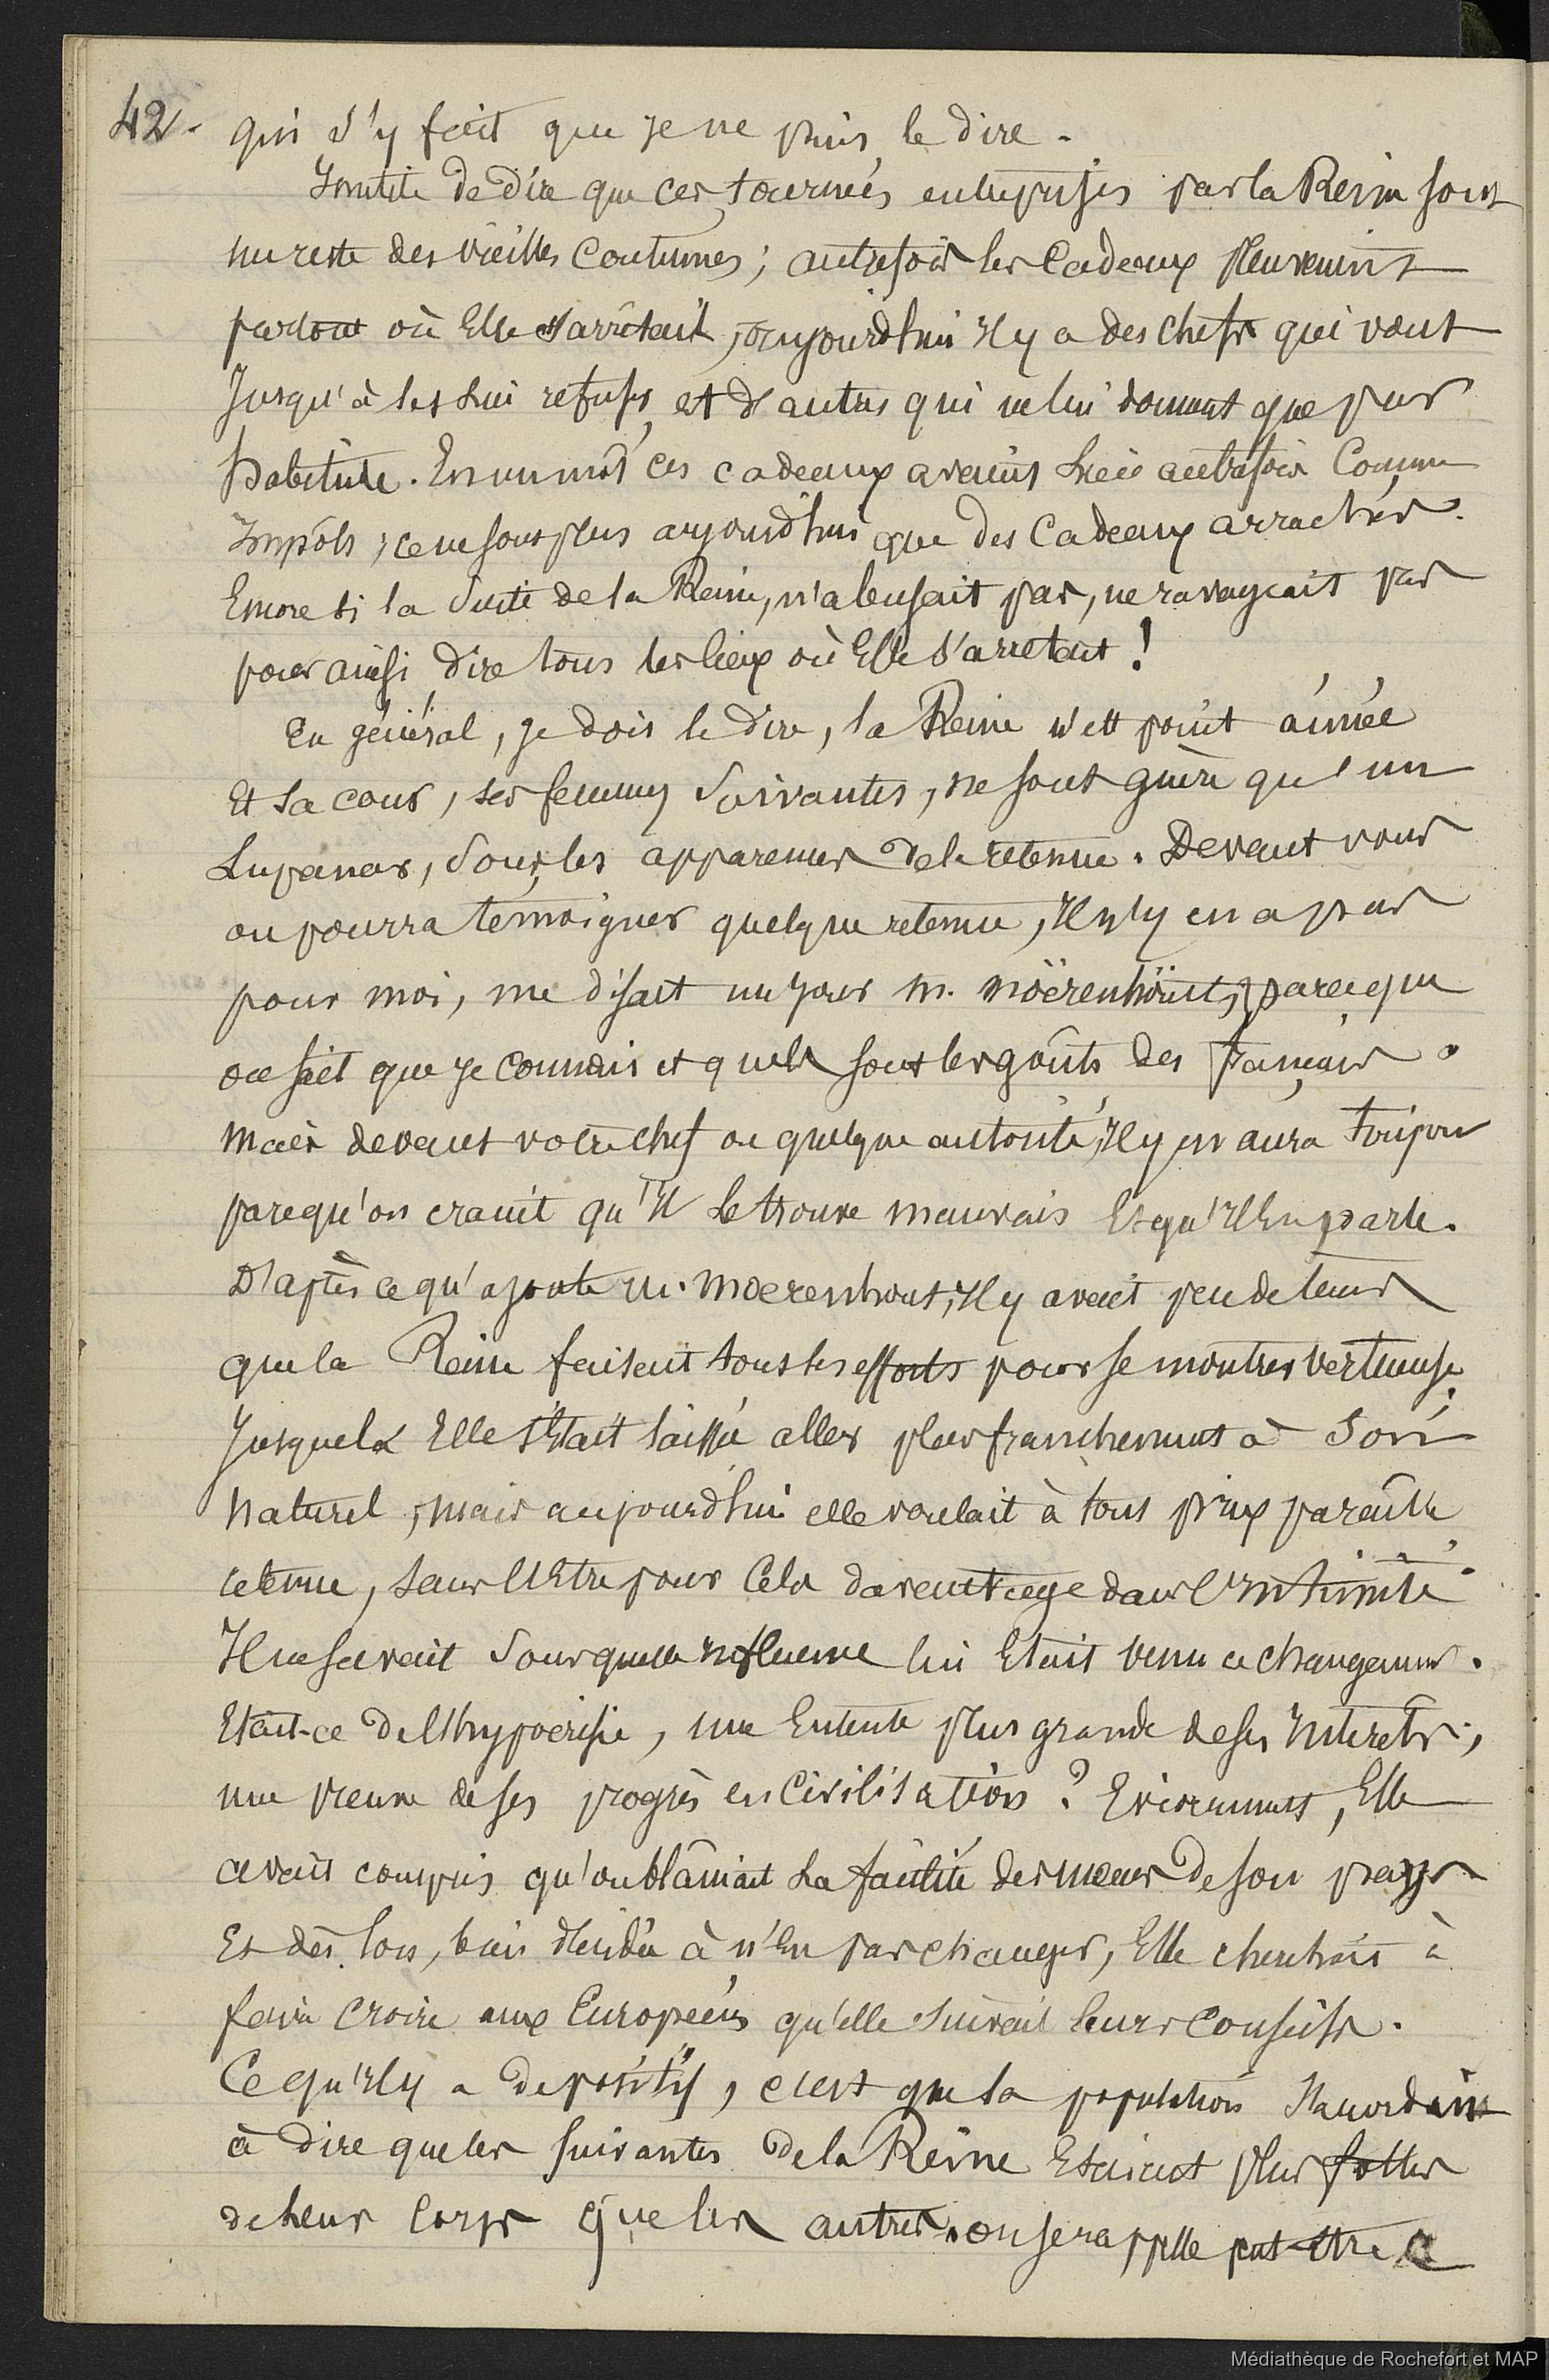 42. qui s'y fait que je ne puis le dire.
Inutile de dire que ces tournées entreprises par la Reine sont
un reste des vieilles coutumes ; autrefois les cadeaux pleuvaient
partout où Elle s'arrêtait, aujourd'hui Il y a des chefs qui vont
Jusqu'à les lui refuser, et d'autres qui ne lui donnent que par
habitude. En un mot ces cadeaux avaient lieu autrefois Comme
Impôts ; ce ne sont plus aujourd'hui que des Cadeaux arrachés.
Encore si la suite de la Reine, n'abusait pas, ne ravageait pas
pour ainsi dire tous les lieux où Elle s'arretait !
En général, je dois le dire, la Reine n'est point aimée
Et sa cour, ses femmes suivantes, ne sont guère qu'un
Lupanar, sous les apparences de la retenue. Devant vous
on pourra témoigner quelque retenue, Il n'y en a pas
pour moi, me disait un jour M. Möerenhöut, parceque
on sait que je connais et quels sont les goûts des français.
Mais devant votre chef ou quelque autorité, Il y en aura toujours
parcequ'on craint qu'Il le trouve mauvais Et qu'Il En parle.
D'après ce qu'ajoute M. Moerenhout, Il y avait peu de tems
que la Reine faisait tous les efforts pour se montrer vertueuse,
Jusque là Elle s'Etait laissée aller plus franchement à Son
naturel, mais aujourd'hui elle voulait à tous prix paraître
retenue, sans l'Etre pour Cela davantage dans l'Intimité.
Il ne savait sous quelle Influence lui Etait venu ce changement.
Etait-ce de l'hypocrisie, une Entente plus grande de ses Interets,
une preuve de ses progrès en Civilisation ? Evidemment, Elle
avait compris qu'on blâmait la facilité des mœurs de son pays
Et dès lors, bien décidée à n'En pas changer, Elle cherchait à
faire croire aux Européens qu'elle suivait leurs conseils.
Ce qu'Il y a de positif, c'est que la population s'accordait
à dire que les suivantes de la Reine Etaient plus folles
de leur corps que les autres. on se rappelle peut-être ce
Médiathèque de Rochefort et MAP